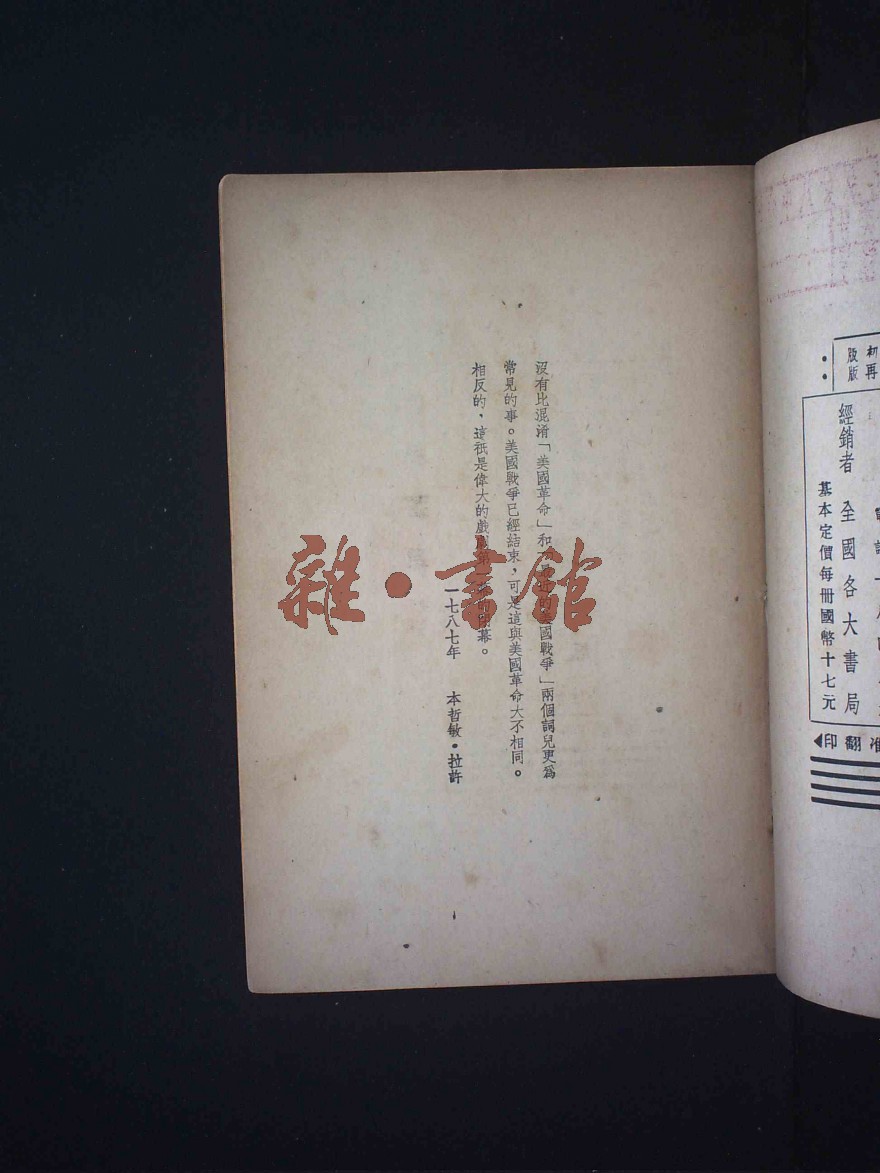 沒有比混淆「美國革命」和國戰爭」兩個詞兒更爲
常見的事。美國戰爭已經結束，可是這與美國革命大不相同。
相反的，這祇是偉大的戲劇第幕。
一七八七年 本哲敏·拉許
雜·書館
初版
再版
經銷者 全國各大書局
基本定價每冊國幣十七元
翻印